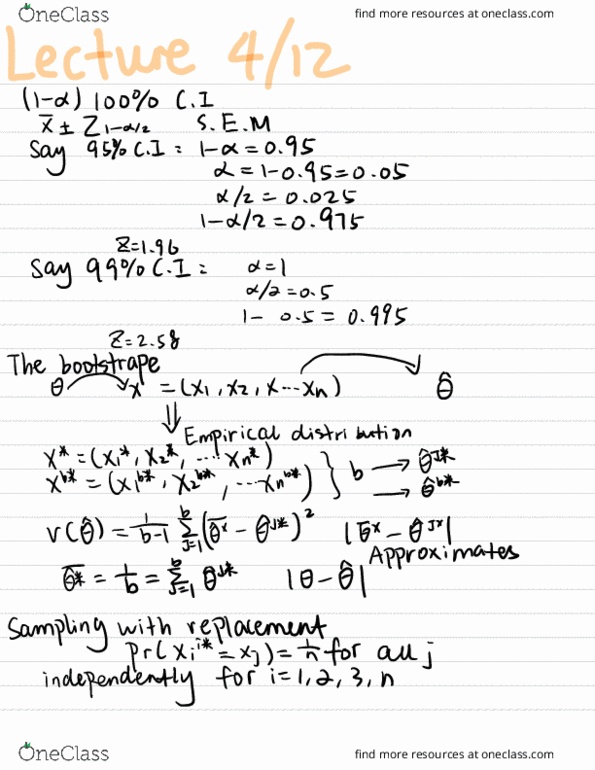 OneClass
find more resources at oneclass.com
Lecture 4/12
(1-α) 100% C.I
x̄ ± Z1-α/2 S.E.M
Say 95% C.I = 1-α = 0.95
α = 1-0.95 = 0.05
α/2 = 0.025
1-α/2 = 0.975
Z=1.96
Say 99% C.I = α=1
α/2 = 0.5
1- 0.5 = 0.995
Z=2.58
The bootstrape
θ x = (x1, x2, x...xn) θ̂
⇓ Empirical distribution
x* = (x1*, x2*, ... xn*)
x^b* = (x1^b*, x2^b*, ... xn^b*) } b → θ̂^J*
→ θ̂^b*
v(θ̂) = 1/b-1 Σ j=1 b (θ̄^x - θ^J*)² |θ̄^x - θ̂^Jx|
Approximates
θ̄* = 1/b = Σ J=1 b θ^J* |θ - θ̂|
Sampling with replacement
Pr(xi^i* = xj) = 1/n for all j
independently for i=1,2,3,n
OneClass
find more resources at oneclass.com